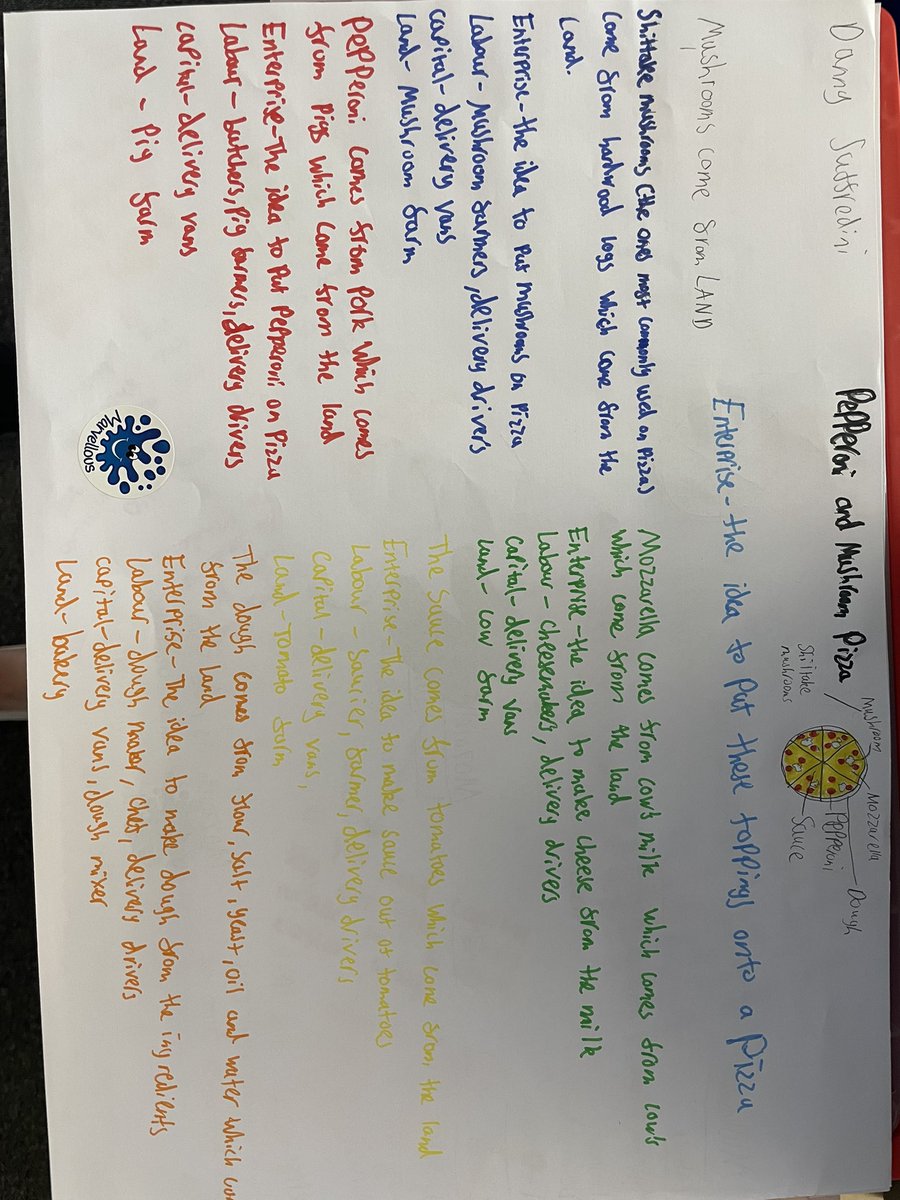 Danny Suffredini
Pepperoni and Mushroom Pizza
Mushroom
Mozzarella
Dough
Pepperoni
Sauce
Shiitake
mushrooms
Enterprise - the idea to put these toppings onto a Pizza
Mushrooms come from LAND
Shiitake mushrooms (the ones most commonly used on Pizzas)
come from hardwood logs which come from the
land.
Enterprise - the idea to put mushrooms on Pizza
Labour - mushroom farmers, delivery drivers
capital - delivery vans
land - Mushroom farm
Pepperoni comes from pork which comes
from pigs which come from the land
Enterprise - The idea to put Pepperoni on Pizza
Labour - butchers, pig farmers, delivery drivers
capital - delivery vans
Land - Pig farm
Marvellous
Mozzarella comes from cow's milk which comes from cow's
which come from the land
Enterprise - the idea to make cheese from the milk
Labour - cheesemakers, delivery drivers
capital - delivery vans
Land - cow farm
The sauce comes from tomatoes which come from the land
Enterprise - The idea to make sauce out of tomatoes
Labour - saucier, farmer, delivery drivers
capital - delivery vans,
Land - Tomato farm
The dough comes from flour, salt, yeast, oil and water which co
from the land
Enterprise - The idea to make dough from the ingredients
Labour - dough maker, chef, delivery drivers
capital - delivery vans, dough mixer
Land - bakery